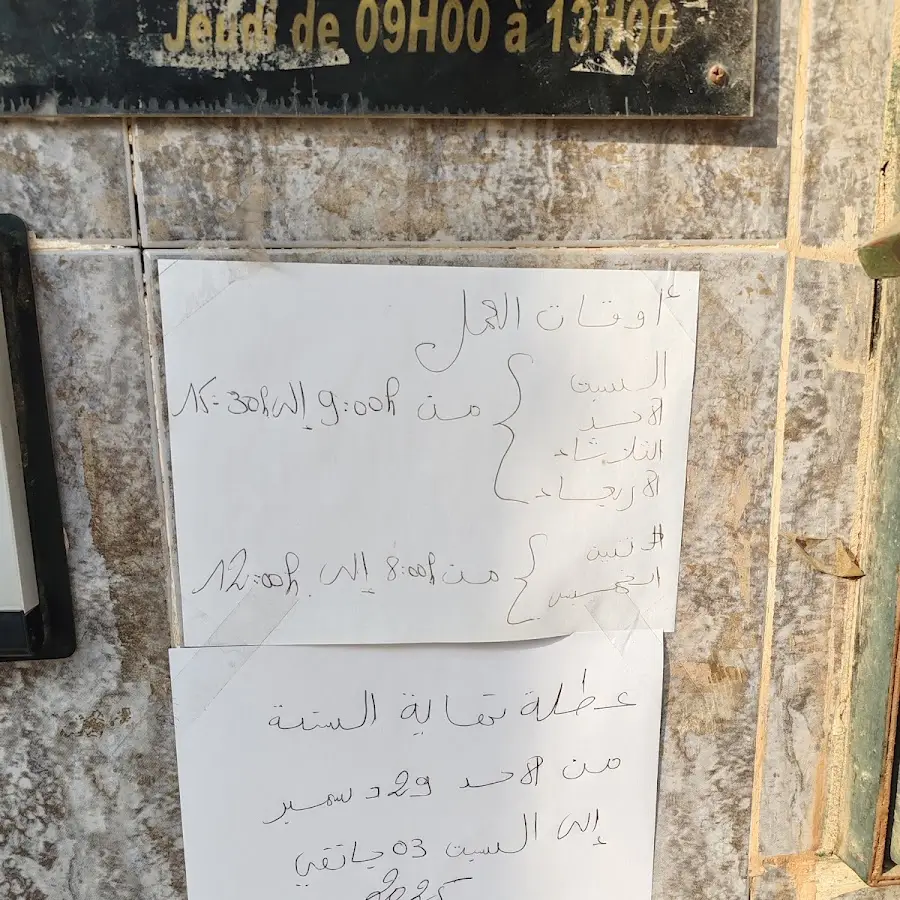 Jeudi de 09H00 à 13H00
أوقات العمل
السبت
الاحد
الثلاثاء
الاربعاء
من 9:00h إلى 15:30h
الاثنين
الخميس
من 8:00h إلى 12:00h
عطلة نهاية السنة
من الاحد 29 دسمبر
إلى السبت 03 جانفي
2025